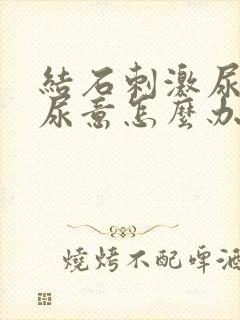 結石刺激尿
尿意怎麼办
燒烤不配啤酒